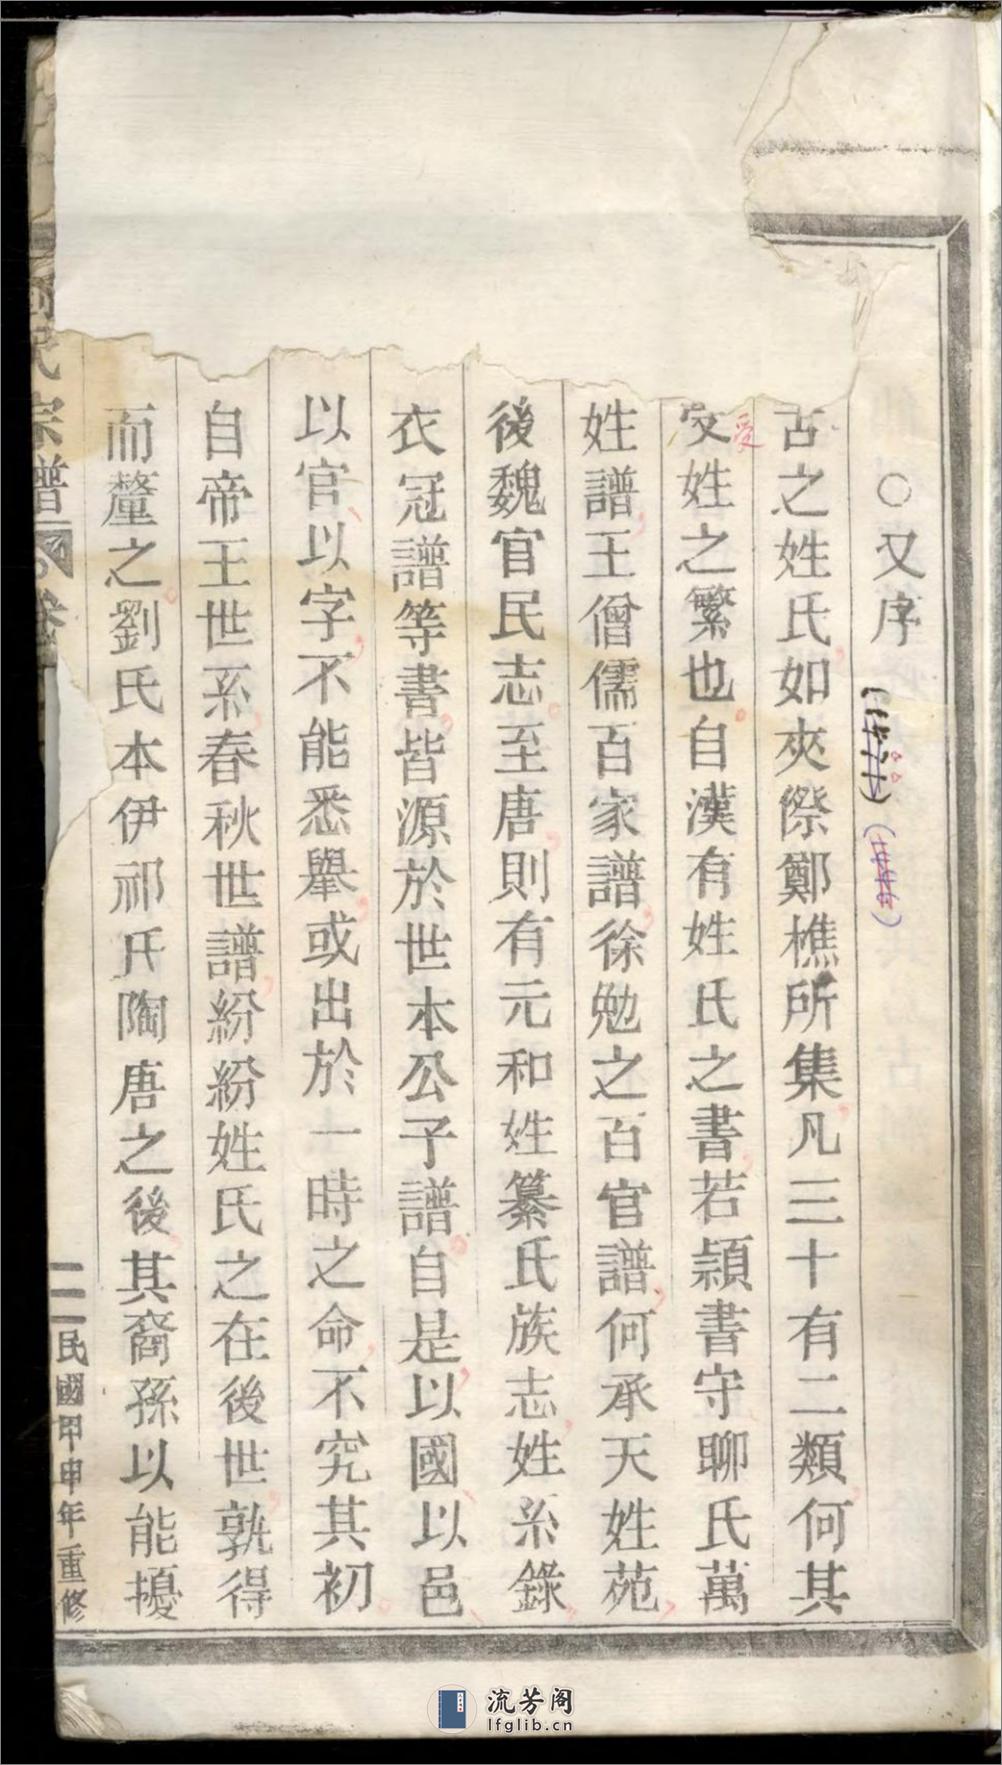 ○又序
古之姓氏如夾漈鄭樵所集凡三十有二類何其
受姓之繁也自漢有姓氏之書若潁書守聊氏萬
姓譜王僧儒百家譜徐勉之百官譜何承天姓苑
後魏官民志至唐則有元和姓纂氏族志姓系錄
衣冠譜等書皆源於世本公子譜自是以國以邑
以官以字不能悉舉或出於一時之命不究其初
自帝王世系春秋世譜紛紛姓氏之在後世孰得
而釐之劉氏本伊祁氏陶唐之後其裔孫以能擾
氏宗譜
卷
二
民國甲申年重修
流芳阁
lfglib.cn